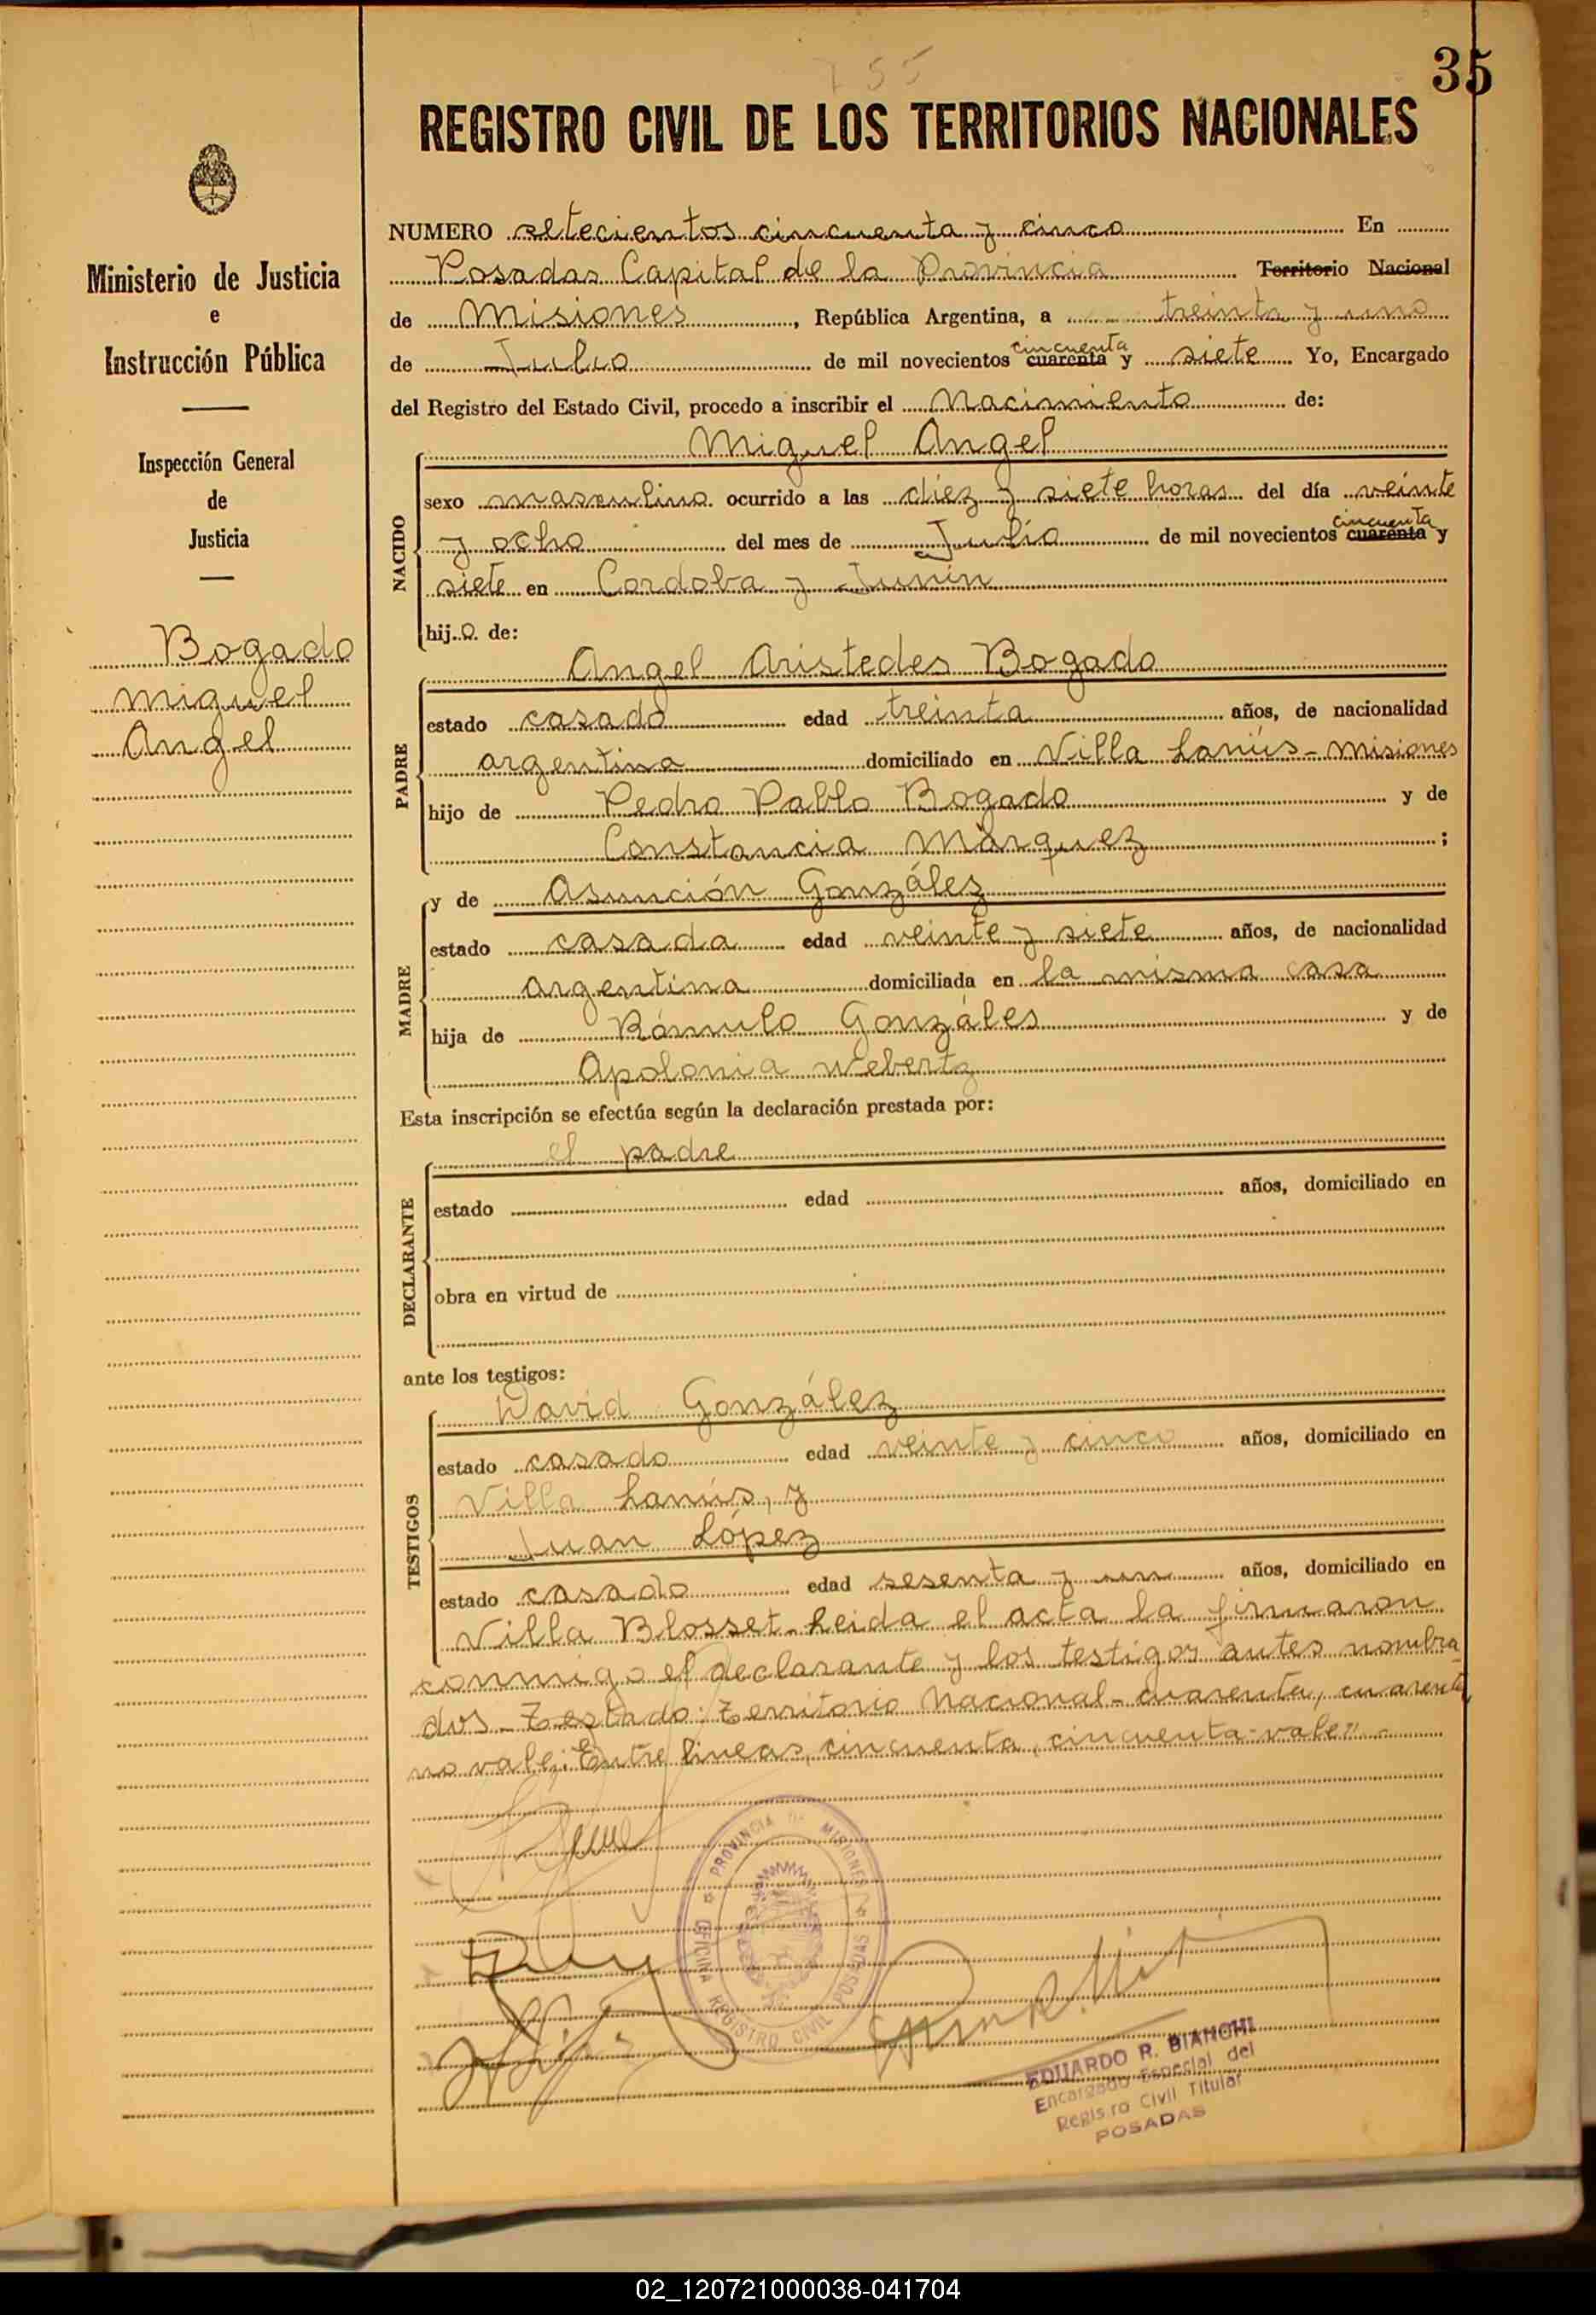 755
35
REGISTRO CIVIL DE LOS TERRITORIOS NACIONALES
Ministerio de Justicia
e
Instrucción Pública
Inspección General
de
Justicia
Bogado
Miguel
Angel
NUMERO setecientos cincuenta y cinco En
Posadas Capital de la Provincia Territorio Nacional
de Misiones, República Argentina, a treinta y uno
de Julio de mil novecientos cuarenta cincuenta y siete Yo, Encargado
del Registro del Estado Civil, procedo a inscribir el Nacimiento de:
NACIDO
Miguel Angel
sexo masculino ocurrido a las diez y siete horas del día veinte
y ocho del mes de Julio de mil novecientos cuarenta cincuenta y
siete en Cordoba y Junín
hijo de:
PADRE
Angel Aristedes Bogado
estado casado edad treinta años, de nacionalidad
argentina domiciliado en Villa Lanús - Misiones
hijo de Pedro Pablo Bogado y de
Constancia Márquez ;
MADRE
y de Asunción González
estado casada edad veinte y siete años, de nacionalidad
argentina domiciliada en la misma casa
hija de Rómulo Gonzáles y de
Apolonia Webertz
Esta inscripción se efectúa según la declaración prestada por:
DECLARANTE
el padre
estado edad años, domiciliado en
obra en virtud de
ante los testigos:
TESTIGOS
David González
estado casado edad veinte y cinco años, domiciliado en
Villa Lanús, y
Juan López
estado casado edad sesenta y un años, domiciliado en
Villa Blosset. Leida el acta la firmaron
conmigo el declarante y los testigos antes nombra
dos - Testado: Territorio Nacional - cuarenta, cuarenta,
no vale: Entre lineas, cincuenta, cincuenta - valen -
PROVINCIA DE MISIONES
OFICINA REGISTRO CIVIL POSADAS
EDUARDO R. BIANCHI
Encargado Especial del
Registro Civil Titular
POSADAS
02_120721000038-041704